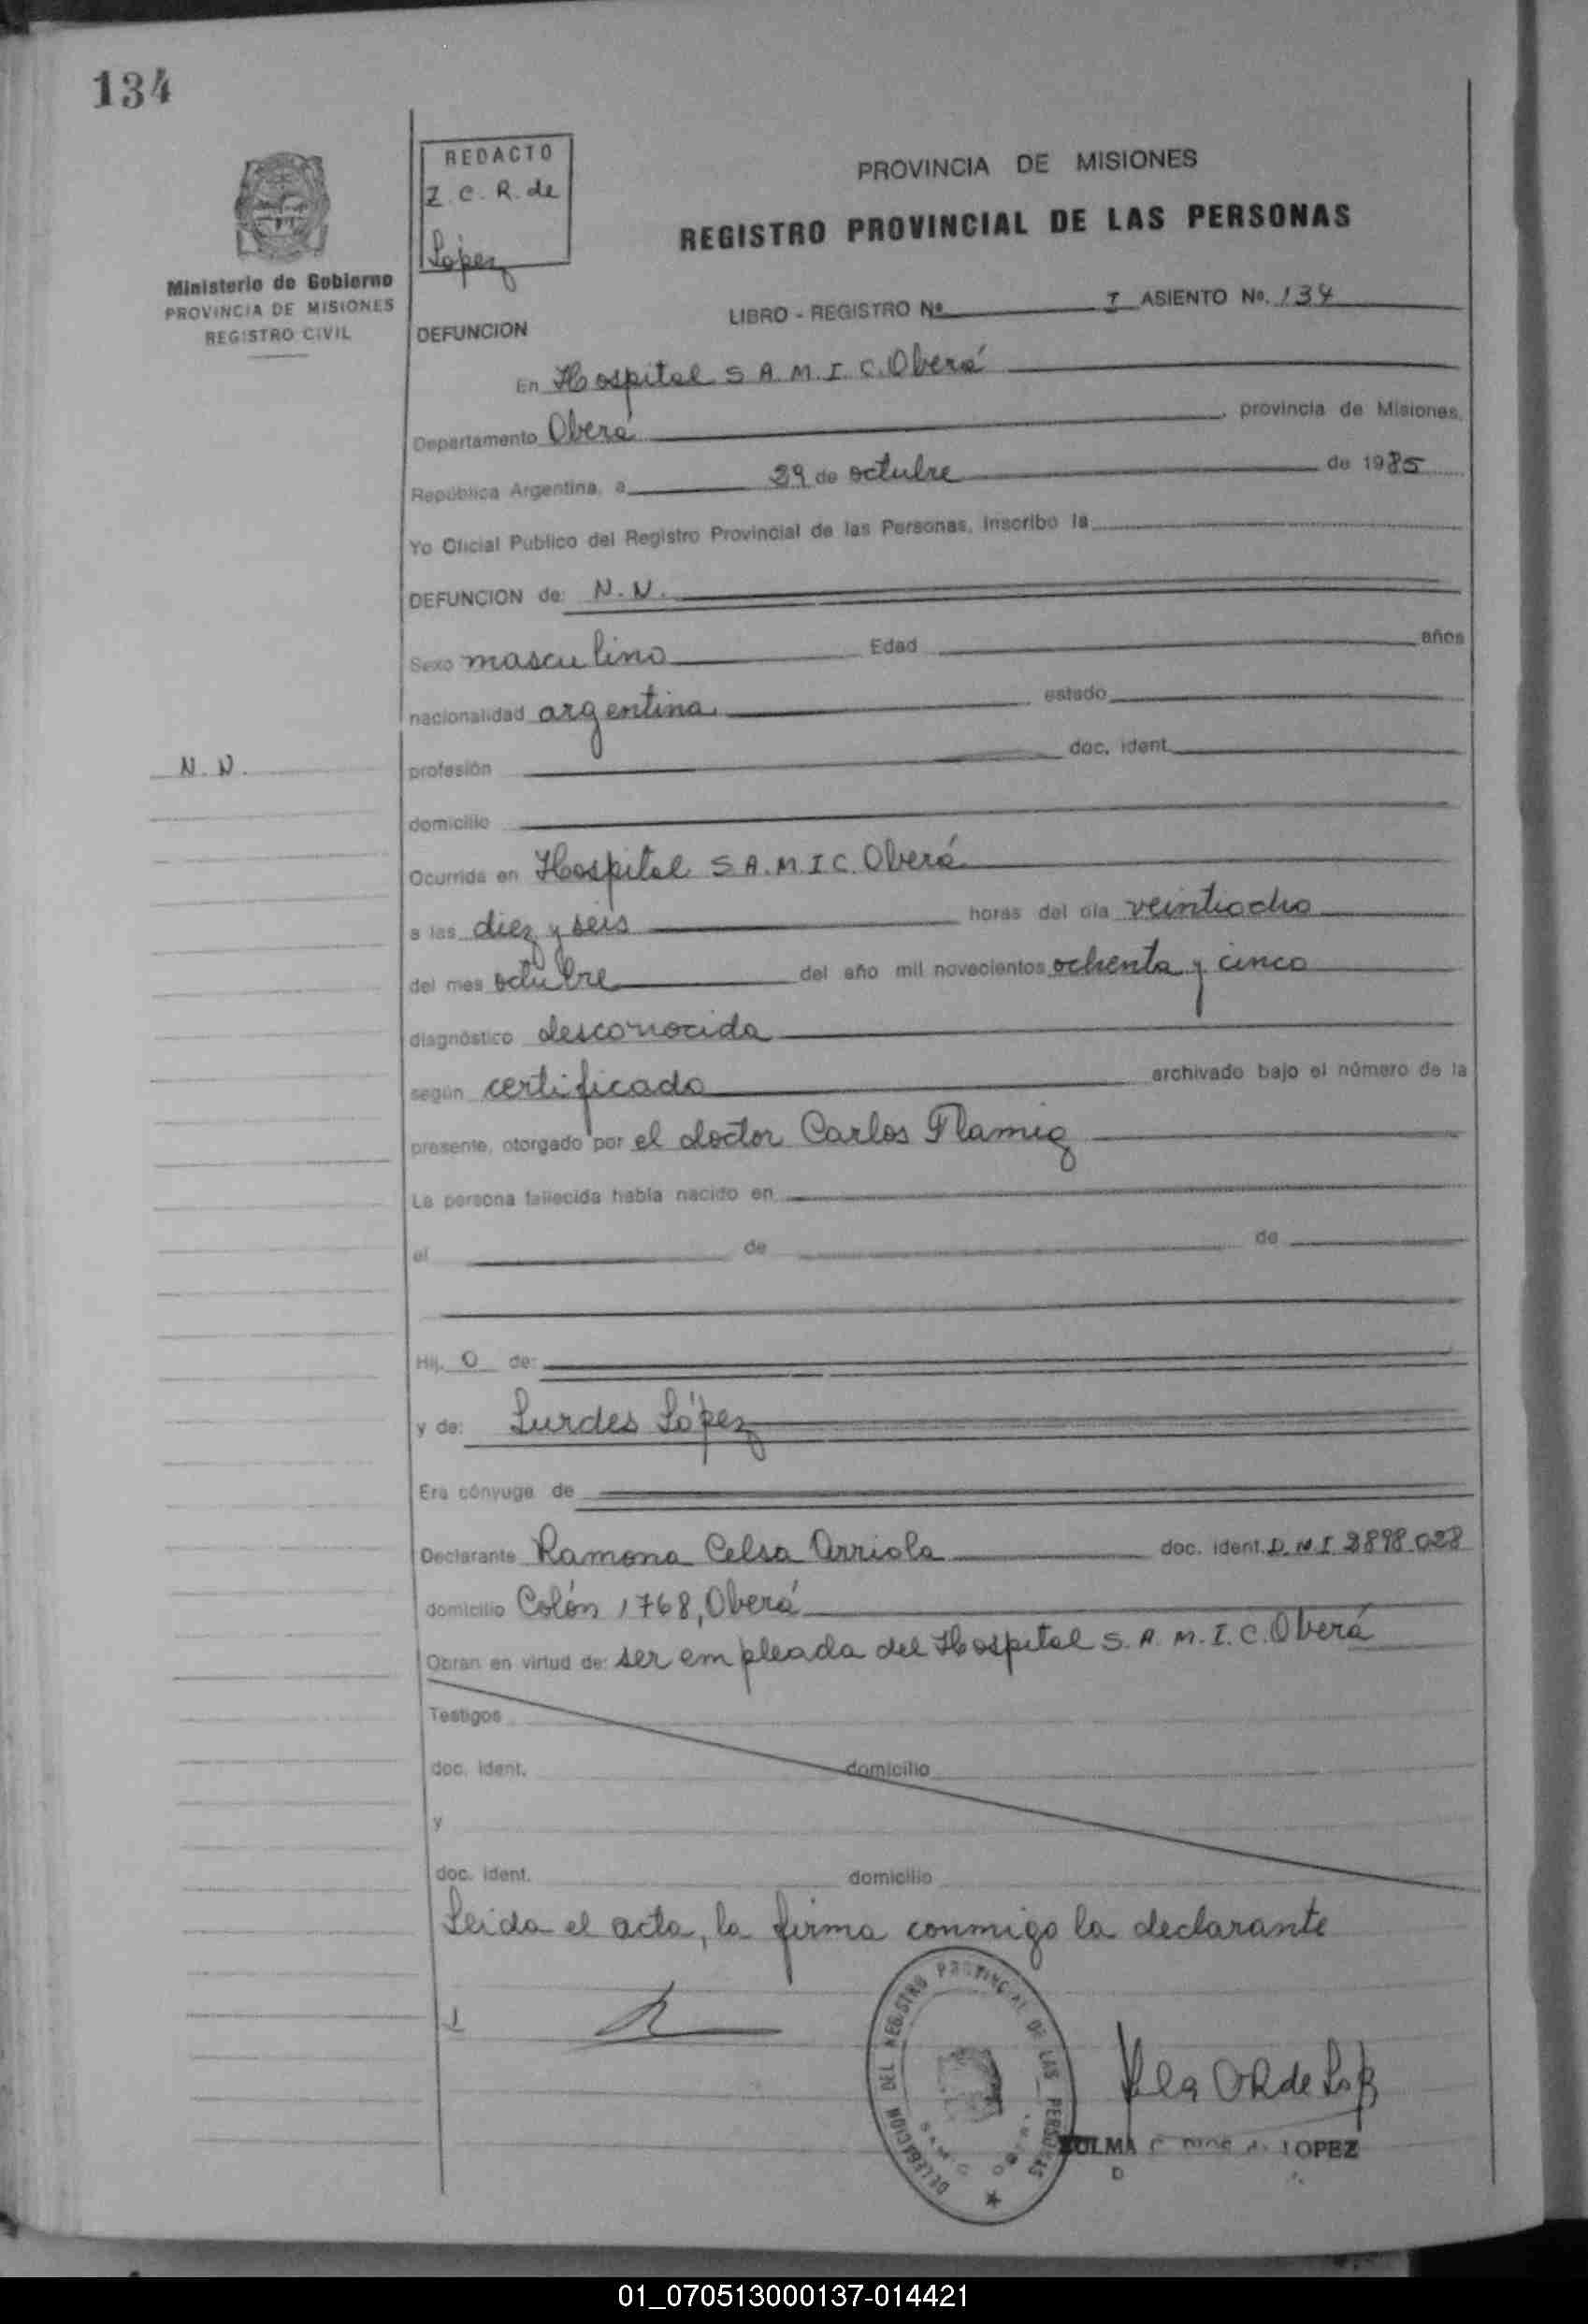 134
REDACTO
Z. C. R. de
López
Ministerio de Gobierno
PROVINCIA DE MISIONES
REGISTRO CIVIL
PROVINCIA DE MISIONES
REGISTRO PROVINCIAL DE LAS PERSONAS
LIBRO - REGISTRO Nº I ASIENTO No. 134
DEFUNCION
En Hospital S.A.M.I.C. Oberá
Departamento Oberá, provincia de Misiones,
República Argentina, a 29 de octubre de 1985
Yo Oficial Publico del Registro Provincial de las Personas, inscribo la
DEFUNCION de: N.N.
Sexo masculino Edad años
nacionalidad argentina, estado
N.N.
profesión doc. ident.
domicilio
Ocurrida en Hospital S.A.M.I.C. Oberá
a las diez y seis horas del día veintiocho
del mes octubre del año mil novecientos ochenta y cinco
diagnóstico desconocida
según certificado archivado bajo el número de la
presente, otorgado por el doctor Carlos Flamig
La persona fallecida había nacido en
el de de
Hij o de:
y de: Lurdes López
Era cónyuge de
Declarante Ramona Celsa Arriola doc. ident. D.N.I 3898028
domicilio Colón 1768, Oberá
Obran en virtud de: ser empleada del Hospital S.A.M.I.C. Oberá
Testigos
doc. ident. domicilio
y
doc. ident. domicilio
Leida el acta, la firma conmigo la declarante
DELEGACION DEL REGISTRO PROVINCIAL DE LAS PERSONAS
ZULMA C. de LOPEZ
01_070513000137-014421